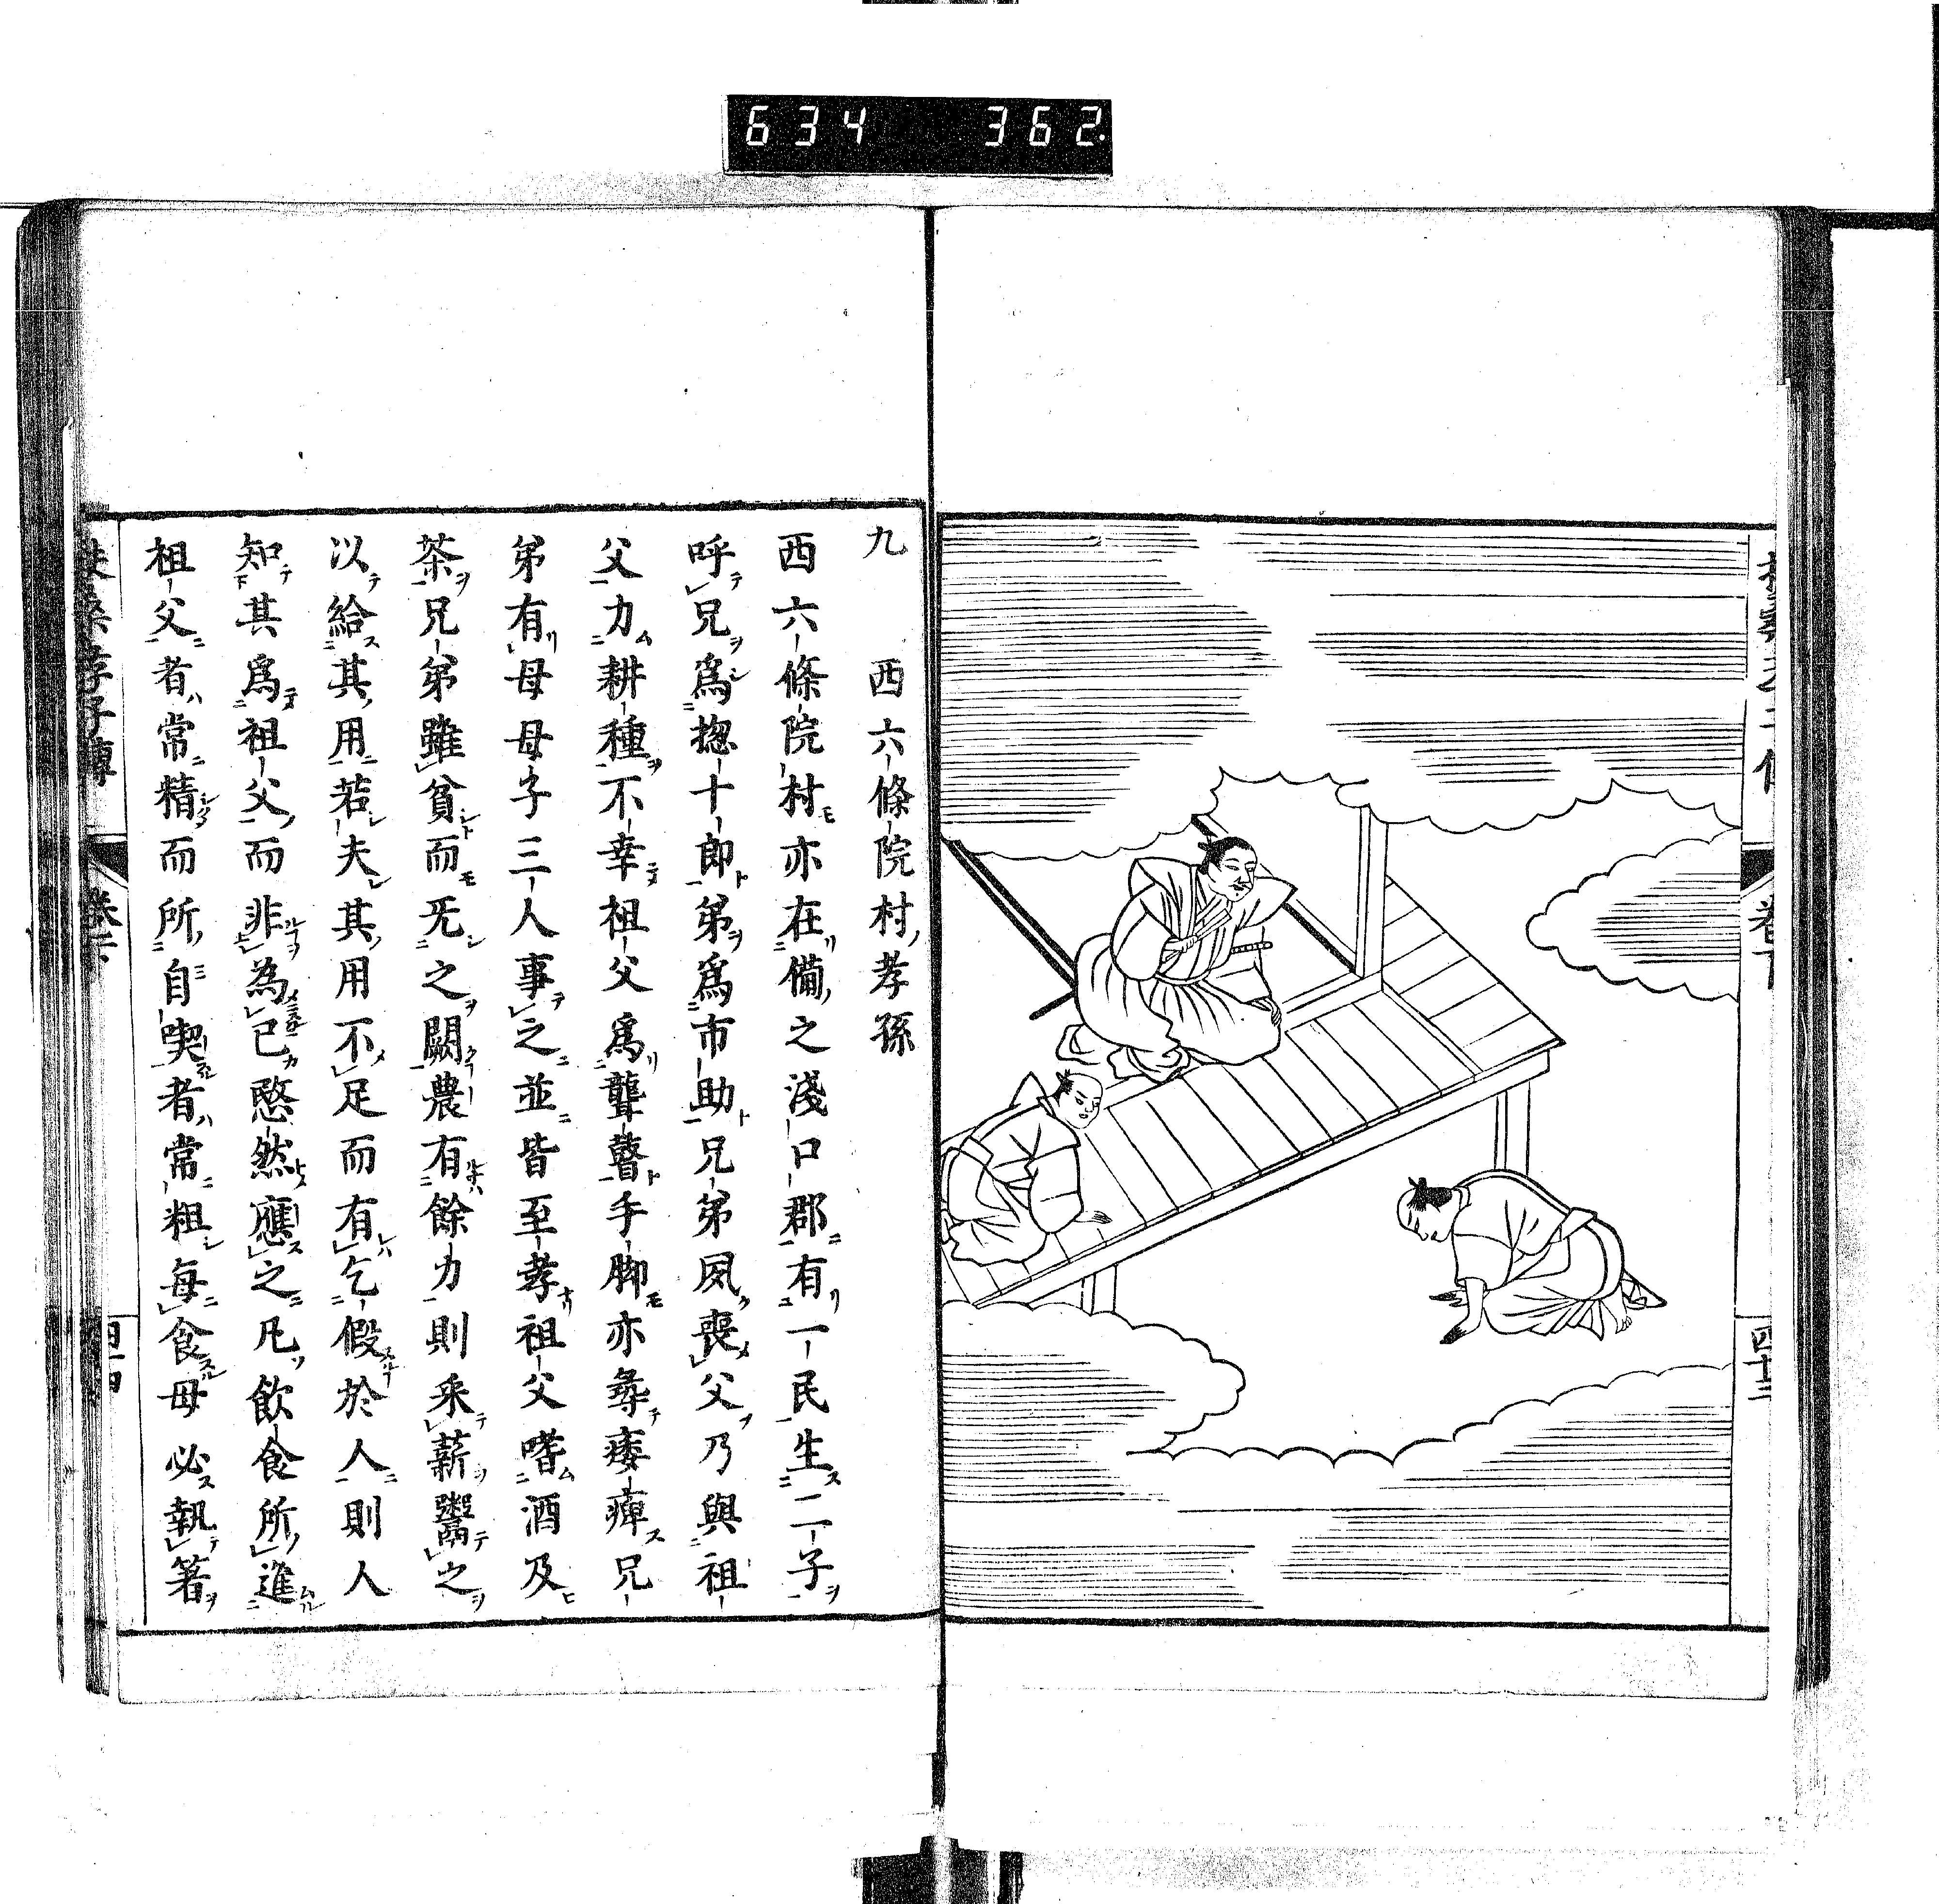 634 362.
四十三
九 西六條院村孝孫
西六條院村亦在備之淺口郡有一民生二子
呼兄爲揔十郎弟爲市助兄弟夙喪父乃與祖
父力耕種不幸祖父爲聾瞽手脚亦痿痺兄
弟有母母子三人事之並皆至孝祖父嗜酒及
茶兄弟雖貧而无之闕農有餘力則采薪鬻之
以給其用若夫其用不足而有乞假於人則人
知其爲祖父而非為己愍然應之凡飮食所進
祖父者常精而所自喫者常粗每食母必執箸
孝子傳 卷下